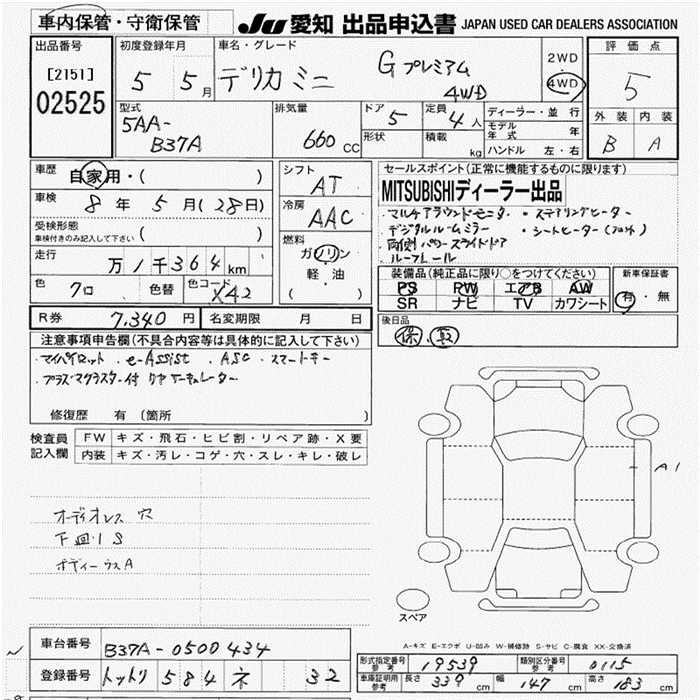 車内保管・守衛保管
JU 愛知 出品申込書 JAPAN USED CAR DEALERS ASSOCIATION
出品番号
[2151]
02525
初度登録年月
5 5月
車名・グレード
デリカミニ
Gプレミアム
4WD
2WD
4WD
評価点
5
外装 内装
B A
型式
5AA-
B37A
排気量
660 CC
ドア 5
形状
定員 4人
積載 kg
ディーラー・並行
モデル年式 年
ハンドル 左・右
車歴
自家用・( )
車検
8年 5月(28日)
受検形態
車検付きのみ記入して下さい ( )
走行
万1千364km
色
クロ
色替
色コード
X42
シフト
AT
冷房
AAC
燃料
ガソリン
軽・油
( )
セールスポイント(正常に機能するものに限ります)
MITSUBISHIディーラー出品
・マルチアラウンドモニタ ・ステアリングヒーター
・デジタルルームミラー ・シートヒーター(フロント)
・両側パワースライドドア
・ルーフレール
装備品(純正品に限り○をつけてください)
PS PW エアB AW
SR ナビ TV カワシート
新車保証書
有・無
R券 7,340円
名変期限 月 日
後日品
保、取
注意事項申告欄(不具合内容等は具体的に記入して下さい)
・マイパイロット ・e-Assist ・ASC ・スマートキー
・プラズマクラスター付 リヤサーキュレーター
修復歴 有(箇所 )
検査員記入欄
FW キズ・飛石・ヒビ割・リペア跡・X要
内装 キズ・汚レ・コゲ・穴・スレ・キレ・破レ
オーディオレス 穴
下回リS
ボディーウスA
A1
スペア
A-キズ E-エクボ U-凹み W-補修跡 S-サビ C-腐食 XX-交換済
車台番号 B37A-0500434
登録番号 トットリ 584 ネ 32
形式指定番号参考 19539
類別区分番号参考 0115
車庫証明用参考 長さ 339cm 幅 147cm 高さ 183cm